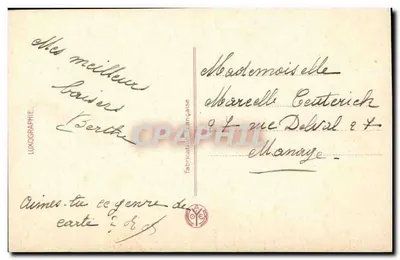 Mes meilleurs
baisers
Berthe
Aimes-tu ce genre de
carte ?
LUXOGRAPHIE
Fabrication Française
CPARAMA.COM
Mademoiselle
Marcelle Ceuterick
27 rue Delval 27
Manage